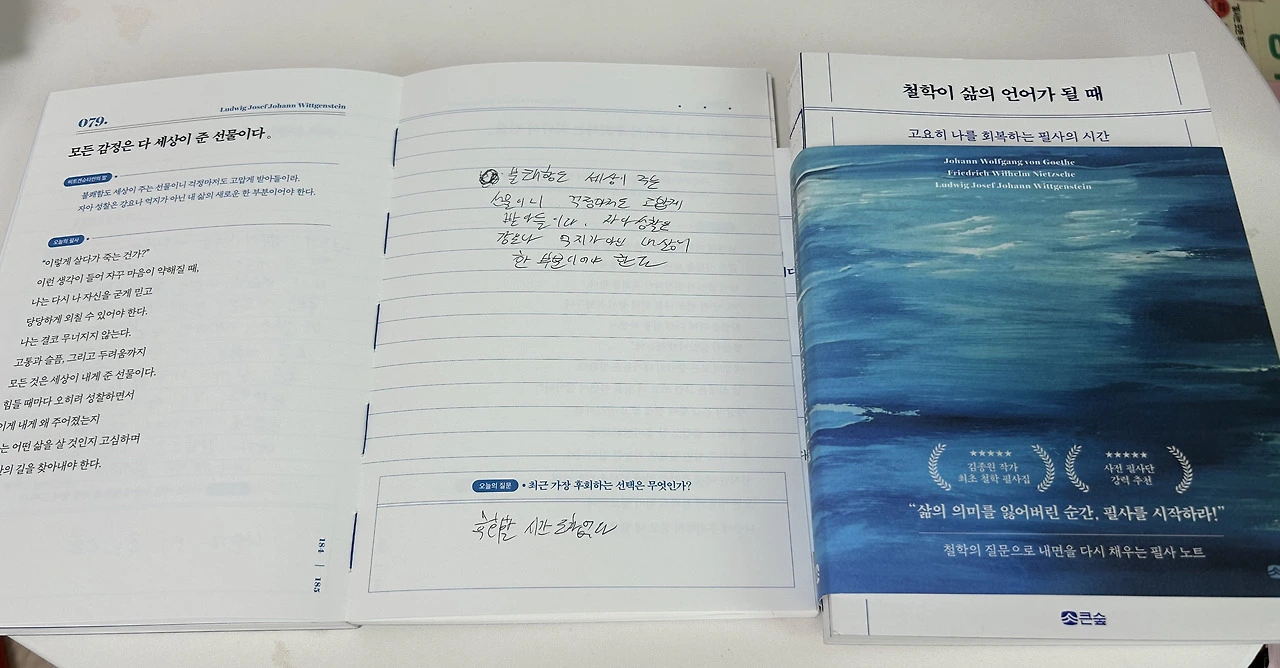 079.
Ludwig Josef Johann Wittgenstein
모든 감정은 다 세상이 준 선물이다.
비트겐슈타인의 말
불쾌함도 세상이 주는 선물이니 걱정마저도 고맙게 받아들이라.
자아 성찰은 강요나 억지가 아닌 내 삶의 새로운 한 부분이어야 한다.
오늘의 필사
"이렇게 살다가 죽는 건가?"
이런 생각이 들어 자꾸 마음이 약해질 때,
나는 다시 나 자신을 굳게 믿고
당당하게 외칠 수 있어야 한다.
나는 결코 무너지지 않는다.
고통과 슬픔, 그리고 두려움까지
모든 것은 세상이 내게 준 선물이다.
힘들 때마다 오히려 성찰하면서
이게 내게 왜 주어졌는지
는 어떤 삶을 살 것인지 고심하며
의 길을 찾아내야 한다.
184 | 185
불쾌함도 세상이 주는
선물이니 걱정마저도 고맙게
받아들이라. 자아 성찰은
강요나 억지가 아닌 내 삶의
한 부분이어야 한다
오늘의 질문
최근 가장 후회하는 선택은 무엇인가?
후회할 시간 조차 없다
철학이 삶의 언어가 될 때
고요히 나를 회복하는 필사의 시간
Johann Wolfgang von Goethe
Friedrich Wilhelm Nietzsche
Ludwig Josef Johann Wittgenstein
★★★★★
김종원 작가
최초 철학 필사집
★★★★★
사전 필사단
강력 추천
"삶의 의미를 잃어버린 순간, 필사를 시작하라!"
철학의 질문으로 내면을 다시 채우는 필사 노트
큰숲